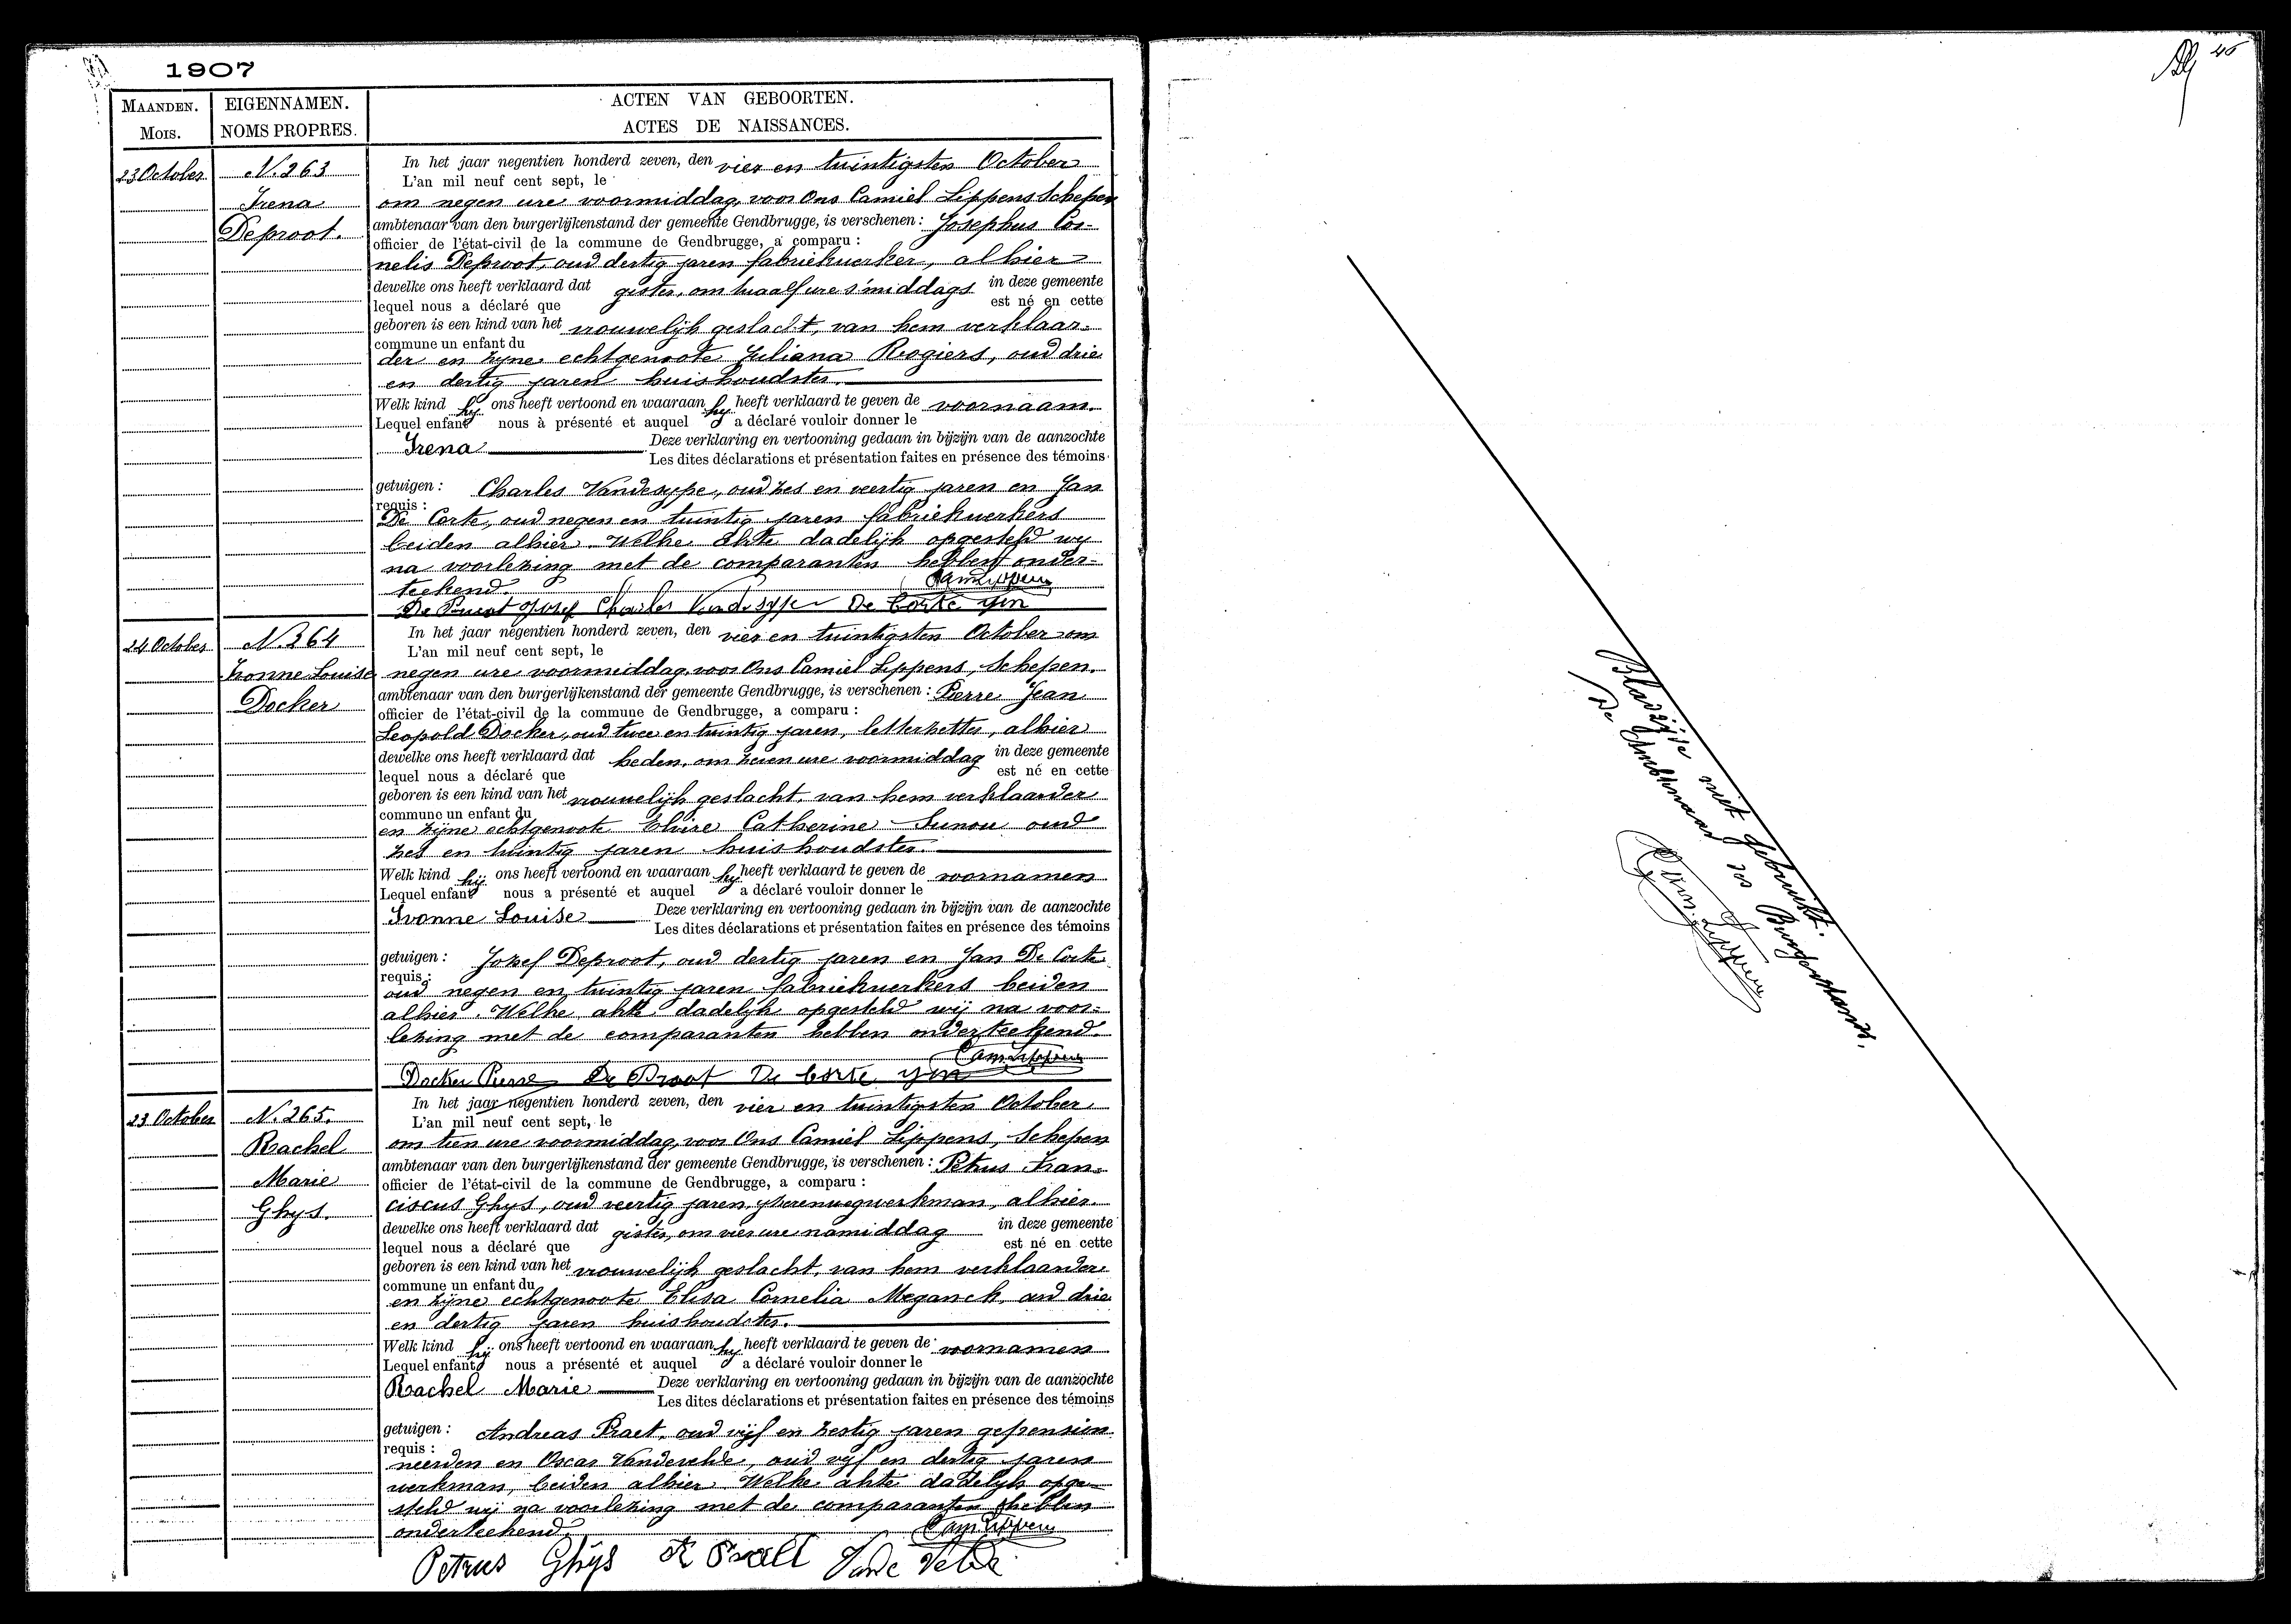 1907
MAANDEN.
MOIS.
EIGENNAMEN.
NOMS PROPRES.
ACTEN VAN GEBOORTEN.
ACTES DE NAISSANCES.
23 October
N. 263
Irena
Deproot.
In het jaar negentien honderd zeven, den vier en twintigsten October
L'an mil neuf cent sept, le
om negen ure voormiddag, voor Ons Camiel Lippens Schepen
ambtenaar van den burgerlijkenstand der gemeente Gendbrugge, is verschenen : Josephus Cor-
officier de l'état-civil de la commune de Gendbrugge, a comparu :
nelis Deproot, oud dertig jaren fabriekwerker, alhier
dewelke ons heeft verklaard dat gister, om twaalf ure s'middags in deze gemeente
lequel nous a déclaré que est né en cette
geboren is een kind van het vrouwelijk geslacht, van hem verklaar-
commune un enfant du
der en zyne echtgenoote Juliana Rogiers, oud drie
en dertig jaren huishoudster.
Welk kind hy ons heeft vertoond en waaraan hy heeft verklaard te geven de voornaam.
Lequel enfant nous à présenté et auquel a déclaré vouloir donner le
Irena Deze verklaring en vertooning gedaan in bijzijn van de aanzochte
Les dites déclarations et présentation faites en présence des témoins
getuigen : Charles Vandesype, oud zes en veertig jaren en Jan
requis :
De Corte, oud negen en twintig jaren fabriekwerkers
beiden alhier. Welke akte dadelijk opgesteld wy
na voorlezing met de comparanten hebben onder-
teekend. Cam Lippens
De Proot Jozef Charles Vandesype De Corte Jan
24 October
N. 264
Ivonne Louise
Docker
In het jaar negentien honderd zeven, den vier en twintigsten October om
L'an mil neuf cent sept, le
negen ure voormiddag, voor Ons Camiel Lippens, Schepen.
ambtenaar van den burgerlijkenstand der gemeente Gendbrugge, is verschenen : Pierre Jean
officier de l'état-civil de la commune de Gendbrugge, a comparu :
Leopold Docker, oud twee en twintig jaren, letterzetter, alhier
dewelke ons heeft verklaard dat heden, om zeven ure voormiddag in deze gemeente
lequel nous a déclaré que est né en cette
geboren is een kind van het vrouwelijk geslacht, van hem verklaarder
commune un enfant du
en zijne echtgenoote Elvire Catherine Sunou oud
zes en twintig jaren huishoudster.
Welk kind hij ons heeft vertoond en waaraan hy heeft verklaard te geven de voornamen
Lequel enfant nous a présenté et auquel a déclaré vouloir donner le
Ivonne Louise Deze verklaring en vertooning gedaan in bijzijn van de aanzochte
Les dites déclarations et présentation faites en présence des témoins
getuigen : Jozef Deproot, oud dertig jaren en Jan De Corte
requis :
oud negen en twintig jaren fabriekwerkers beiden
alhier. Welke akte dadelijk opgesteld wij na voor-
lezing met de comparanten hebben onderteekend.
Cam Lippens
Docker Pierre De Proot De Corte Jan
23 October
N. 265.
Rachel
Marie
Ghys.
In het jaar negentien honderd zeven, den vier en twintigsten October
L'an mil neuf cent sept, le
om tien ure voormiddag, voor Ons Camiel Lippens, Schepen
ambtenaar van den burgerlijkenstand der gemeente Gendbrugge, is verschenen : Petrus Fran-
officier de l'état-civil de la commune de Gendbrugge, a comparu :
ciscus Ghys, oud veertig jaren, yzerenwegwerkman, alhier.
dewelke ons heeft verklaard dat gister, om vier ure namiddag in deze gemeente
lequel nous a déclaré que est né en cette
geboren is een kind van het vrouwelijk geslacht, van hem verklaarder
commune un enfant du
en zijne echtgenoote Elisa Cornelia Meganck, oud drie
en dertig jaren huishoudster.
Welk kind hij ons heeft vertoond en waaraan hy heeft verklaard te geven de voornamen
Lequel enfant nous a présenté et auquel a déclaré vouloir donner le
Rachel Marie Deze verklaring en vertooning gedaan in bijzijn van de aanzochte
Les dites déclarations et présentation faites en présence des témoins
getuigen : Andreas Praet, oud vijf en zestig jaren gepension
requis :
neerden en Oscar Vandevelde, oud vyf en dertig jaren
werkman, beiden alhier. Welke akte dadelijk opge-
steld wij na voorlezing met de comparanten hebben
onderteekend. Cam Lippens
Petrus Ghijs Vande Velde
46
Bladzijde niet gebruikt.
De Ambtenaar des Burgerstands.
Cam. Lippens